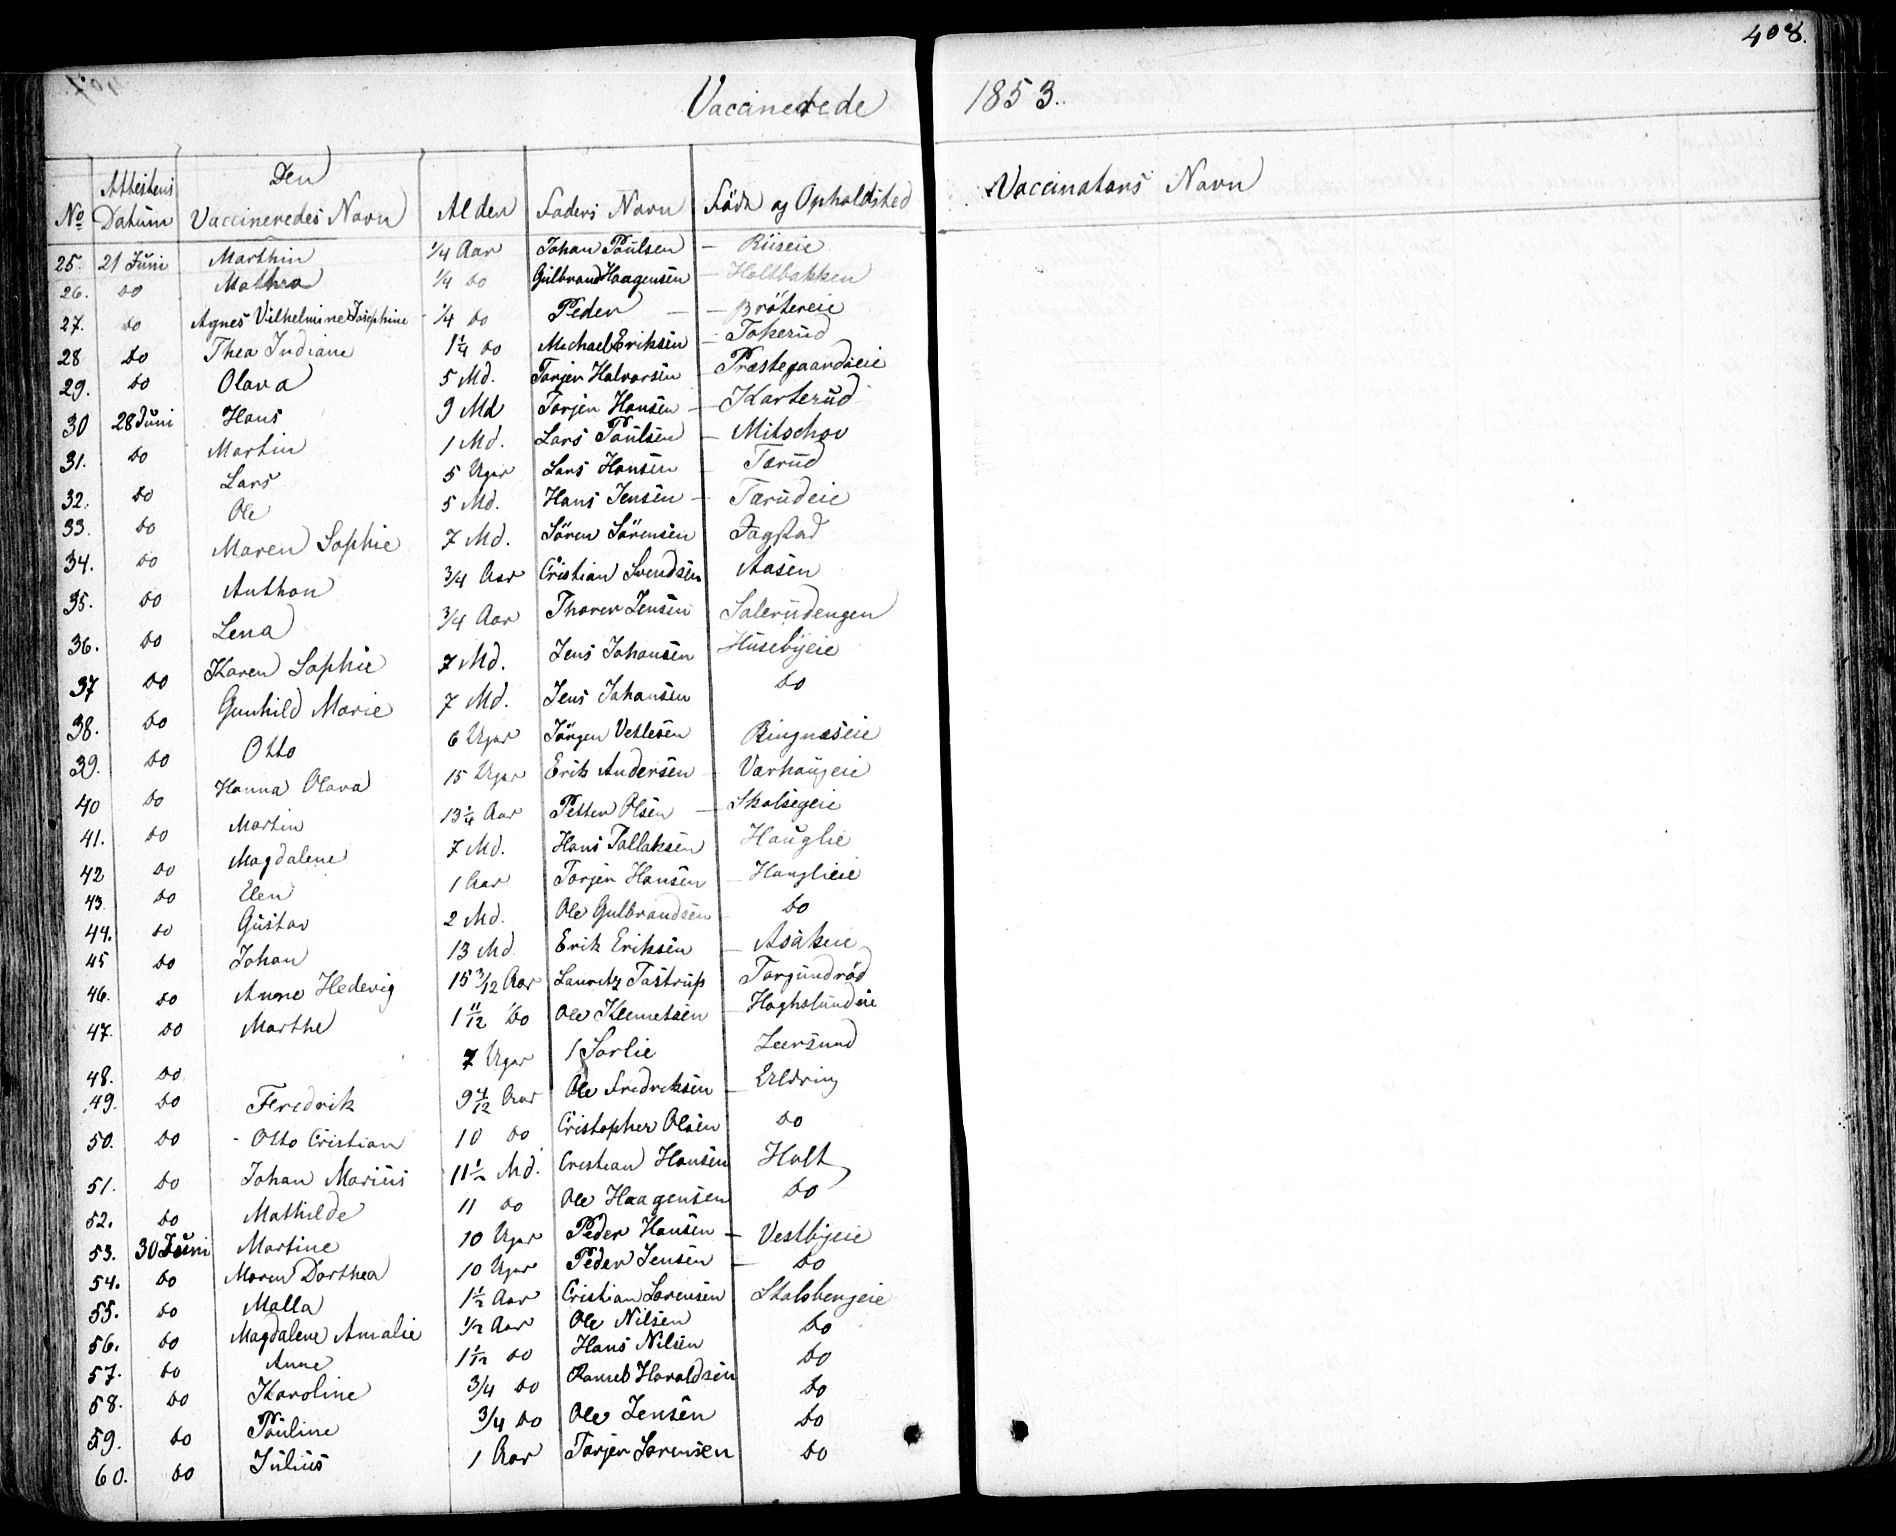 408.
Vaccinerede 1853.
No Attestens Datum Den Vaccineredes Navn Alder Faders Navn Föde og Opholdsted Vaccinatørs Navn
25. 21 Juni Marthin 1/4 Aar Johan Poulsen – Riiseie
26. do Mathea 1/4 do Gulbrand Haagensen – Holtbakken
27. do Agnes Vilhelmine Josephine 1/4 do Peder – – Bråtereie
28 do Thea Indiane 1 1/4 do Michael Eriksen – Tokerud
29. do Olava 5 Md. Torjer Halvorsen – Præstegaardseie
30 28 Juni Hans 9 Md Torjer Hansen – Karterud
31. do Martin 1 Md. Lars Poulsen – Mitschov
32. do Lars 5 Uger Lars Hansen – Tærud
33. do Ole 5 Md. Hans Jensen – Tærudeie
34. do Maren Sophie 7 Md. Sören Sörensen Jagstad
35. do Anthon 3/4 Aar Cristian Svendsen Aasen
36. do Lena 3/4 Aar Thorer Jensen Salerudengen
37 do Karen Sophie 7 Md. Jens Johansen Husebyeie
38. do Gunhild Marie 7 Md. Jens Johansen do
39. do Otto 6 Uger Jörgen Vetlesen Ringnæseie
40 do Hanna Olava 15 Uger Erik Andersen – Varhougeie
41. do Martin 13 1/4 Aar Petter Olsen – Skolsegeie
42 do Magdalene 7 Md. Hans Tallaksen Houglie
43. do Elen 1 Aar Torjer Hansen – Houglieie
44. do Gustav 2 Md. Ole Gulbrandsen – do
45 do Johan 13 Md Erik Eriksen – Asakeie
46. do Anne Hedevig 15 3/12 Aar Lauritz Tostrup Torgundrød
47. do Marthe 1 11/12 do Ole Klemetsen – Haghslundeie
48. do 7 Uger Sorlie Leersund
49. do Fredrik 9 4/12 Aar Ole Fredriksen – Eldring
50. do - Otto Cristian 10 do Cristopher Olsen do
51. do Johan Marius 11 1/2 Md. Cristian Hansen Holt
52. do Mathilde 11 do Ole Haagensen do
53. 30 Juni Martine 10 Uger Peder Hansen – Vestbyeie
54. do Maren Dorthea 10 Uger Peder Jensen – do
55. do Malla 1 1/2 Aar Cristian Sorensen Skalsbergeie
56. do Magdalene Amalie 1/2 Aar Ole Nilsen do
57. do Anne 1 1/12 do Hans Nilsen do
58. do Karoline 3/4 do Haraldsen do
59. do Pouline 3/4 do Ole Jensen do
60. do Julius 1 Aar Torjer Sorensen do